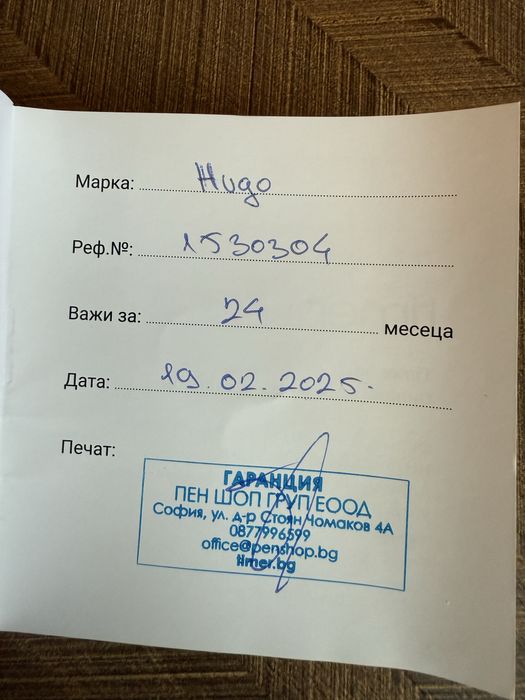 Марка: Hugo
Реф.№: 1530304
Важи за: 24 месеца
Дата: 19.02.2025.
Печат:
ГАРАНЦИЯ
ПЕН ШОП ГРУП ЕООД
София, ул. д-р Стоян Чомаков 4А
0877996599
office@penshop.bg
timer.bg